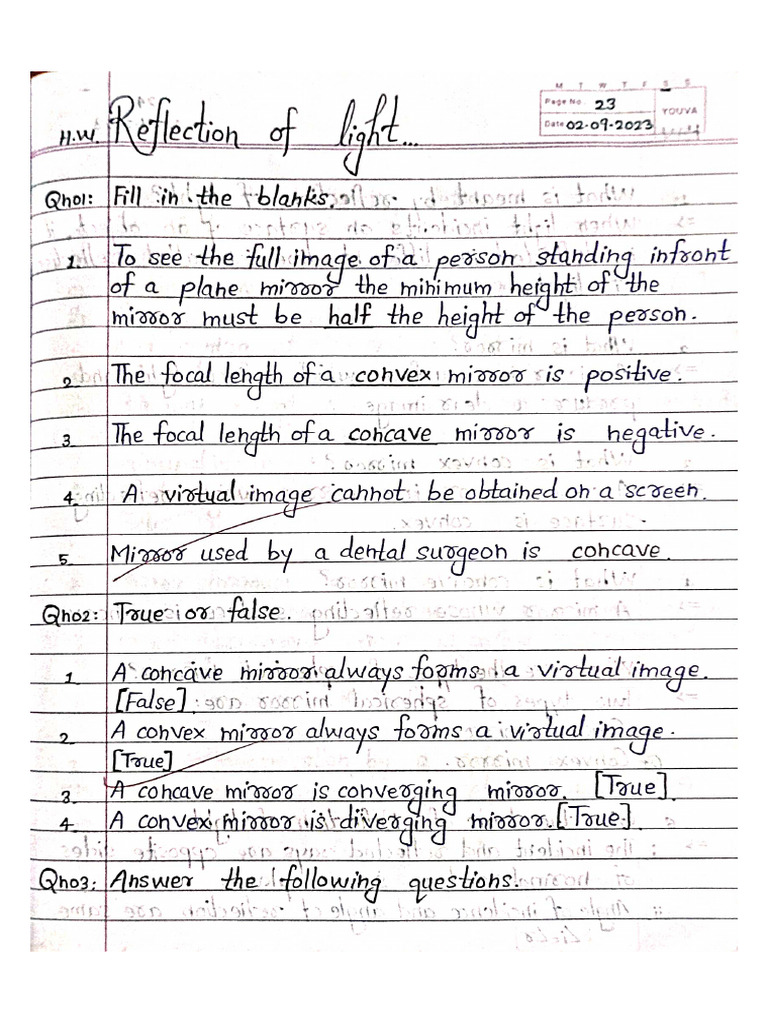 M T W T F S S
Page No. 23
YOUVA
Date 02-09-2023
H.W. Reflection of light...
Qno1: Fill in the blanks.
1. To see the full image of a person standing infront
of a plane mirror the minimum height of the
mirror must be half the height of the person.
2 The focal length of a convex mirror is positive.
3 The focal length of a concave mirror is negative.
4. A virtual image cannot be obtained on a screen.
5 Mirror used by a dental surgeon is concave.
Qno2: True or false.
1 A concave mirror always forms a virtual image.
[False]
2 A convex mirror always forms a virtual image.
[True]
3. A concave mirror is converging mirror. [True]
4. A convex mirror is diverging mirror. [True]
Qno3: Answer the following questions.